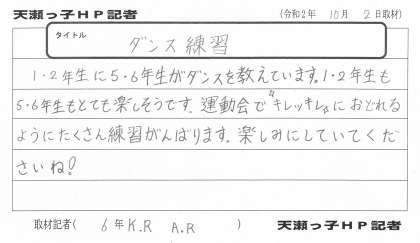 天瀬っ子HP記者 (令和2年 10月 2日取材)
タイトル
ダンス練習
1・2年生に5・6年生がダンスを教えています。1・2年生も
5・6年生もとても楽しそうです。運動会で〝キレッキレ〟におどれる
ようにたくさん練習がんばります。楽しみにしていてくだ
さいね!
取材記者( 6年 K.R A.R ) 天瀬っ子HP記者